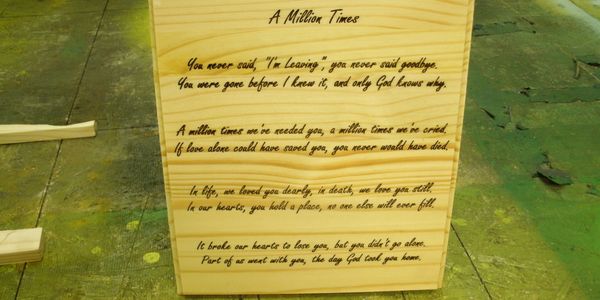 A Million Times
You never said, "I'm Leaving", you never said goodbye.
You were gone before I knew it, and only God knows why.
A million times we've needed you, a million times we've cried.
If love alone could have saved you, you never would have died.
In life, we loved you dearly, in death, we love you still.
In our hearts, you hold a place, no one else will ever fill.
It broke our hearts to lose you, but you didn't go alone.
Part of us went with you, the day God took you home.